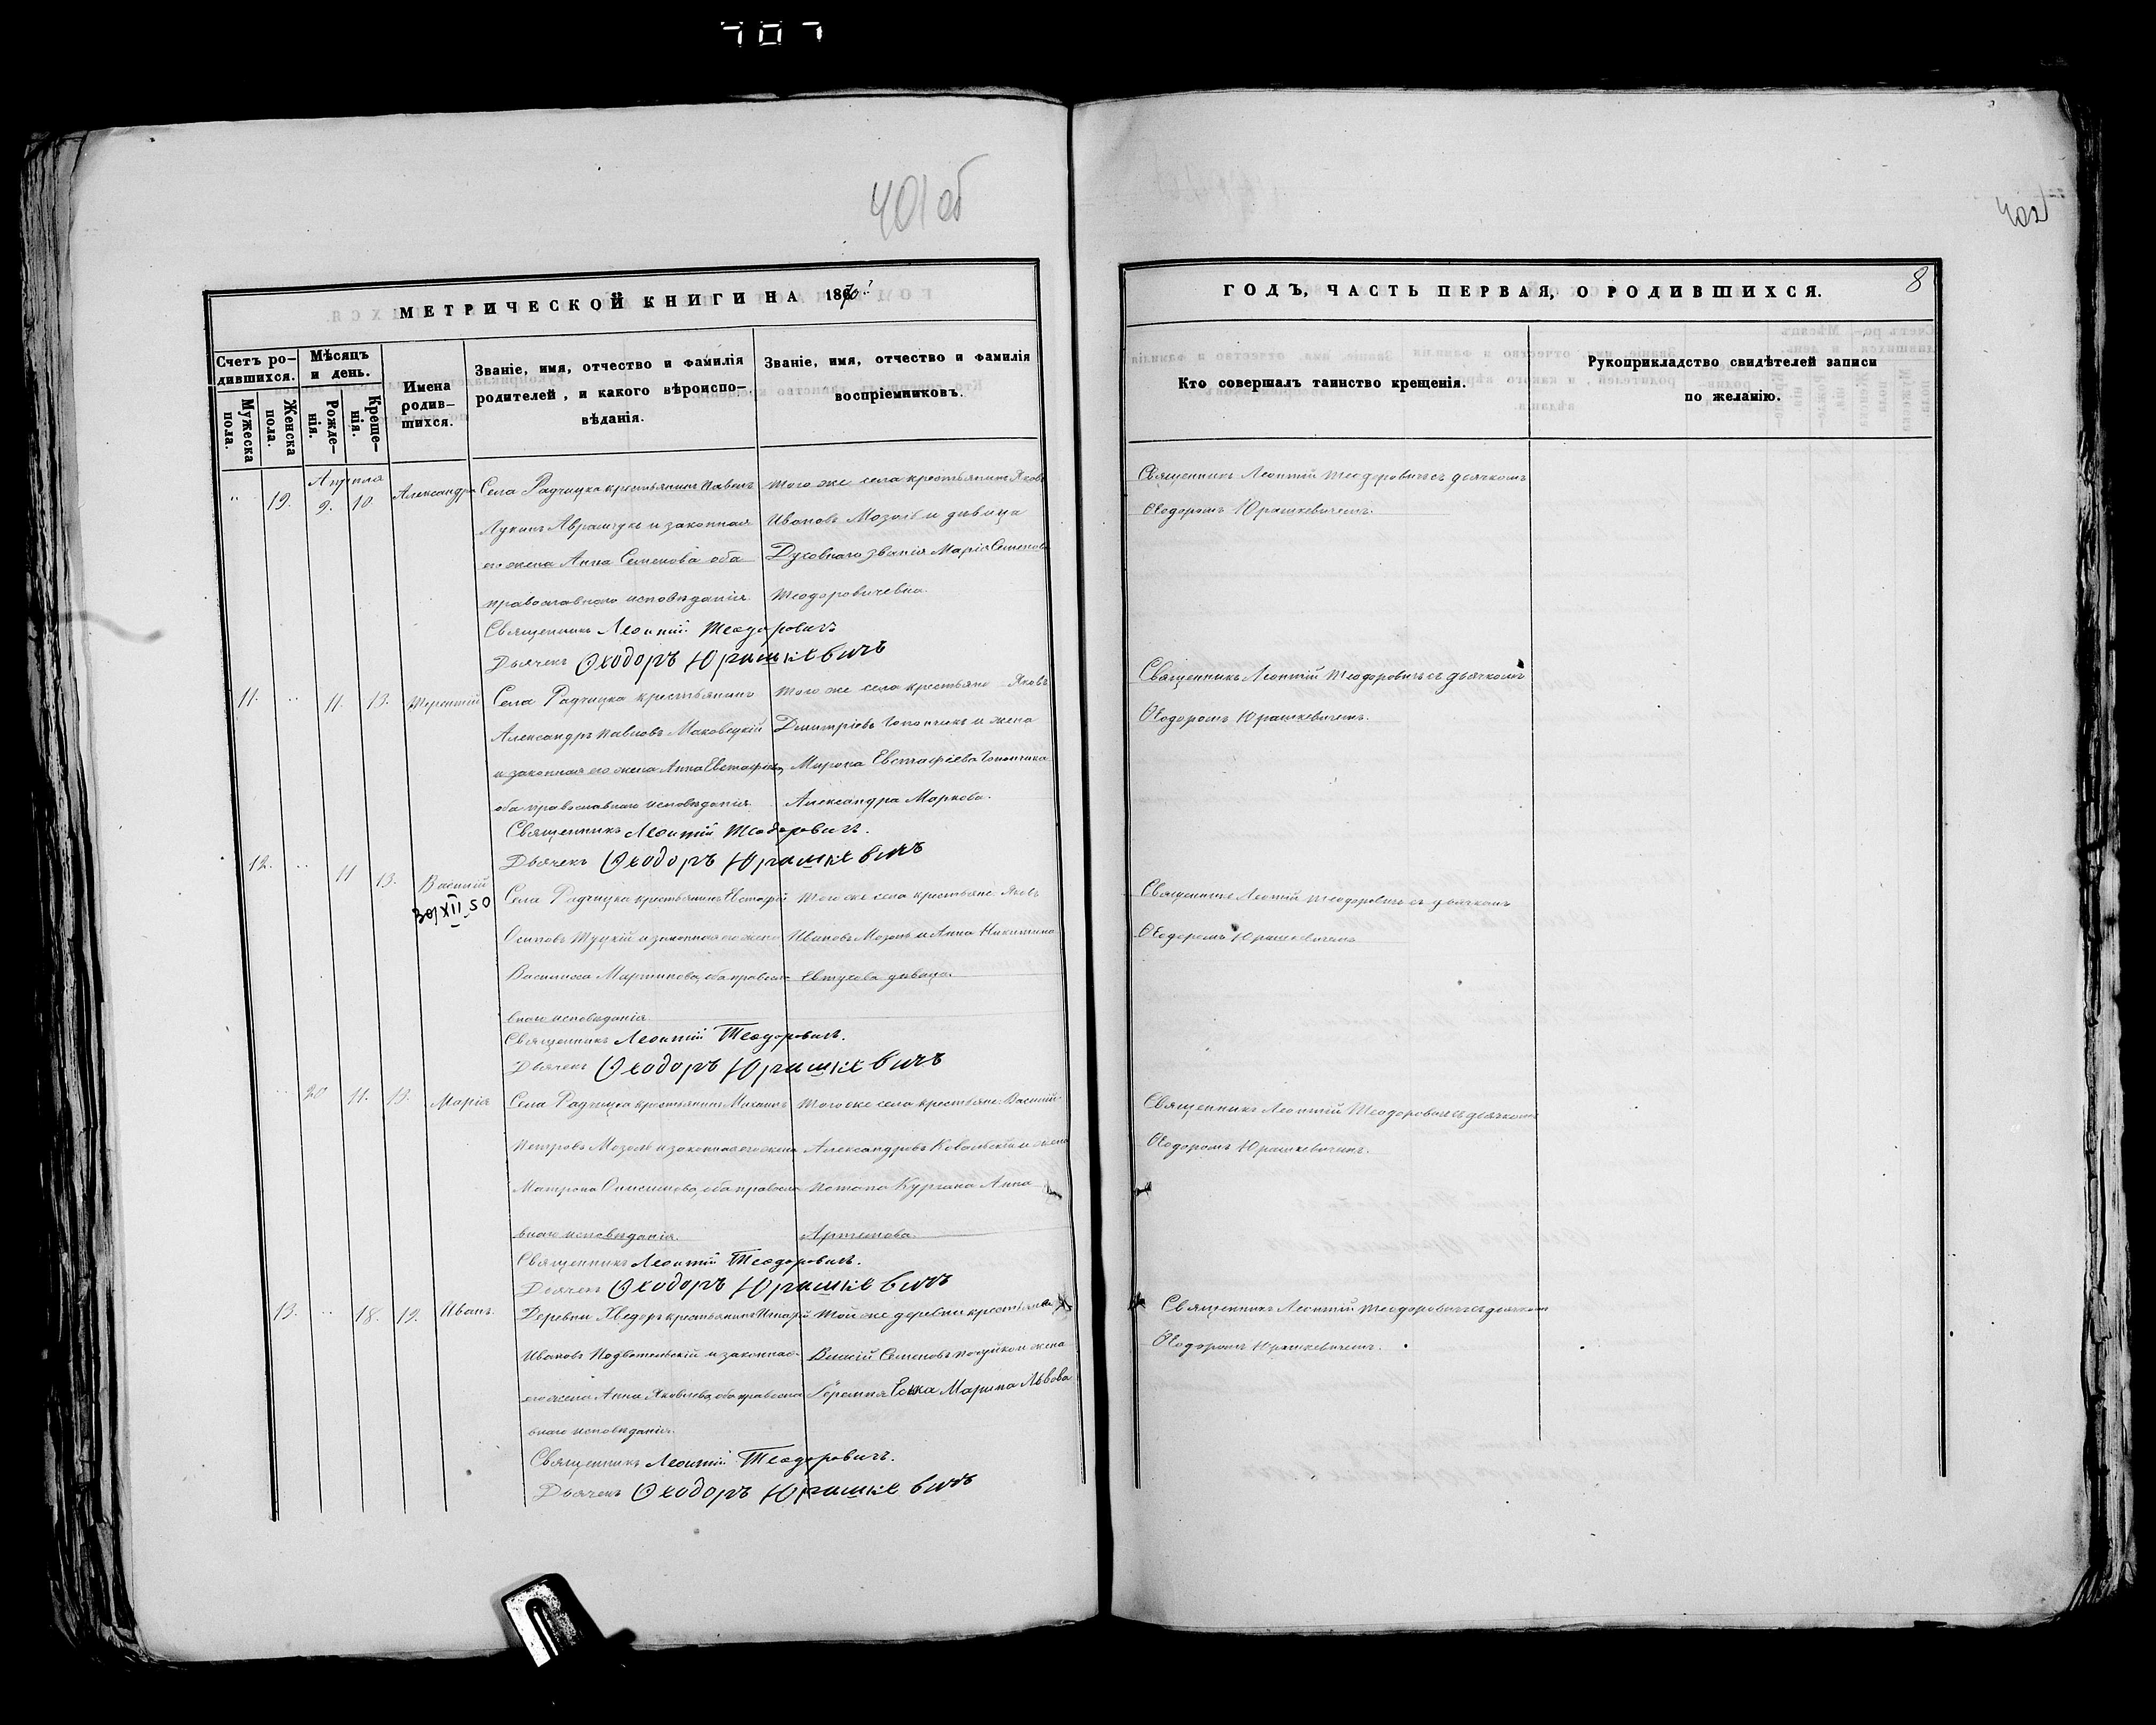 707
401 об
402
МЕТРИЧЕСКОЙ КНИГИ НА 1870й
ГОДЪ, ЧАСТЬ ПЕРВАЯ, О РОДИВШИХСЯ.
8
Счетъ ро-
дившихся.
Мужеска
пола.
Женска
пола.
Мѣсяцъ
и день.
Рожде-
нія.
Креще-
нія.
Имена
родив-
шихся.
Званіе, имя, отчество и фамилія
родителей, и какого вѣроиспо-
вѣданія.
Званіе, имя, отчество и фамилія
воспріемниковъ.
Кто совершалъ таинство крещенія.
Рукоприкладство свидѣтелей записи
по желанію.
Апрѣля
" 19. 9. 10 Александра
Села Радчицка крестьянинъ Павелъ
Лукинъ Абрамчукъ и законная
его жена Анна Семенова оба
православнаго исповѣданія.
Того же села крестьянинъ Яковъ
Ивановъ Мозоль и дѣвица
Духовнаго званія Марія Семенова
Теодоровичевна.
Священникъ Леонтій Теодоровичъ
Дьячекъ Ѳеодоръ Юрашкевичъ
Священникъ Леонтій Теодоровичъ съ дьячкомъ
Ѳеодоромъ Юрашкевичемъ.
11. " 11. 13. Терентій
Села Радчицка крестьянинъ
Александръ Павловъ Маковецкій
и законная его жена Анна Евстафіева
оба православнаго исповѣданія.
Того же села крестьяне Яковъ
Дмитріевъ Гопончикъ и жена
Мирона Евстафіева Гопончика
Александра Маркова.
Священникъ Леонтій Теодоровичъ.
Дьячекъ Ѳеодоръ Юрашкевичъ
Священникъ Леонтій Теодоровичъ съ дьячкомъ
Ѳеодоромъ Юрашкевичемъ.
12. " 11 13. Василій
30/XII 50
Села Радчицка крестьянинъ Евстафій
Осиповъ Туцкій и законная его жена
Василиса Мартинова, оба правосла-
внаго исповѣданія.
Того же села крестьяне Яковъ
Ивановъ Мозоль и Анна Никитина
Евтухова дѣвица.
Священникъ Леонтій Теодоровичъ.
Дьячекъ Ѳеодоръ Юрашкевичъ
Священникъ Леонтій Теодоровичъ съ дьячкомъ
Ѳеодоромъ Юрашкевичемъ
" 20 11. 13. Марія
Села Радчицка крестьянинъ Михаилъ
Петровъ Мозоль и законная его жена
Матрона Онисимова, оба правосла-
внаго исповѣданія.
Того же села крестьяне: Василій
Александровъ Ковальскій и жена
Потапа Кургана Анна
Артемова.
Священникъ Леонтій Теодоровичъ.
Дьячекъ Ѳеодоръ Юрашкевичъ
Священникъ Леонтій Теодоровичъ съ дьячкомъ
Ѳеодоромъ Юрашкевичемъ.
13. " 18. 19. Иванъ.
Деревни Хведоръ крестьянинъ
Ивановъ и законная
его жена Анна Яковлева, оба правосла-
внаго исповѣданія.
Той же деревни крестьяне
Семеновъ и жена
Марина Львова
Священникъ Леонтій Теодоровичъ.
Дьячекъ Ѳеодоръ Юрашкевичъ
Священникъ Леонтій Теодоровичъ съ дьячкомъ
Ѳеодоромъ Юрашкевичемъ.